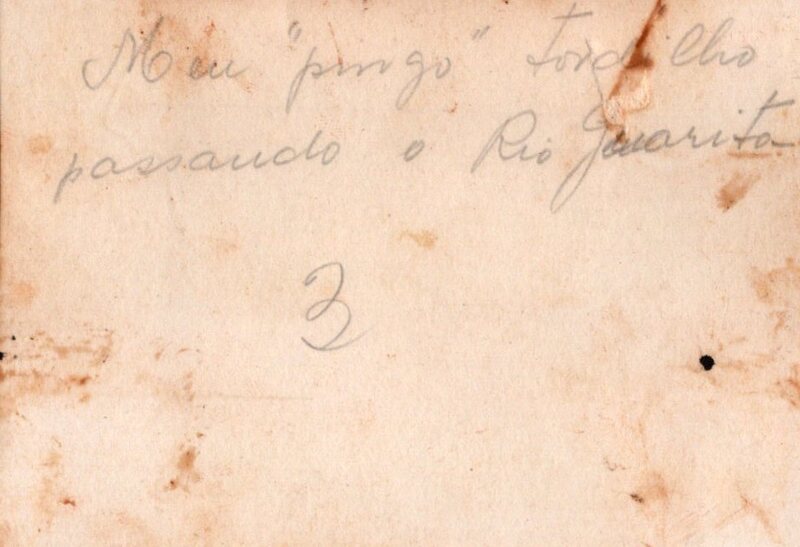 Meu "pingo" tordilho
passando o Rio Guarita
3